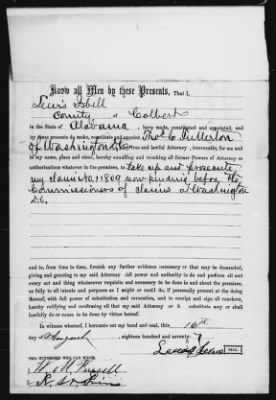 Know all Men by these Presents, That I,
Lewis Isbell
County of Colbert
in the State of Alabama, have made, constituted and appointed, and
by these presents do make, constitute and appoint Thos. C. Fullerton
of Washington D.C. true and lawful Attorney, irrevocable, for me and
in my name, place and stead, hereby annulling and revoking all former Powers of Attorney or
authorizations whatever in the premises, to take up and prosecute
my claim No. 11809 now pending before the
Commissioners of claims at Washington
D.C.
and to, from time to time, furnish any further evidence necessary or that may be demanded,
giving and granting to my said Attorney full power and authority to do and perform all and
every act and thing whatsoever requisite and necessary to be done in and about the premises,
as fully to all intents and purposes as I might or could do if personally present at the doing
thereof, with full power of substitution and revocation, and to receipt and sign all vouchers,
hereby ratifying and confirming all that my said Attorney or h substitute may or shall
lawfully do or cause to be done by virtue hereof.
In witness whereof, I hereunto set my hand and seal, this 16th
day of August, eighteen hundred and seventy
Lewis SEAL.
TWO WITNESSES WHO CAN WRITE.
W. M. Russell